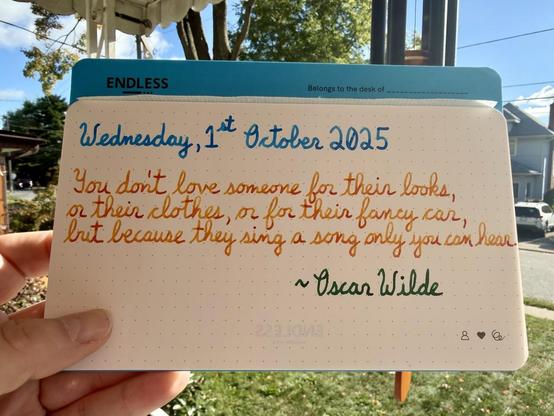 ENDLESS
Belongs to the desk of
Wednesday, 1st October 2025
You don't love someone for their looks,
or their clothes, or for their fancy car,
but because they sing a song only you can hear.
~ Oscar Wilde
ENDLESS